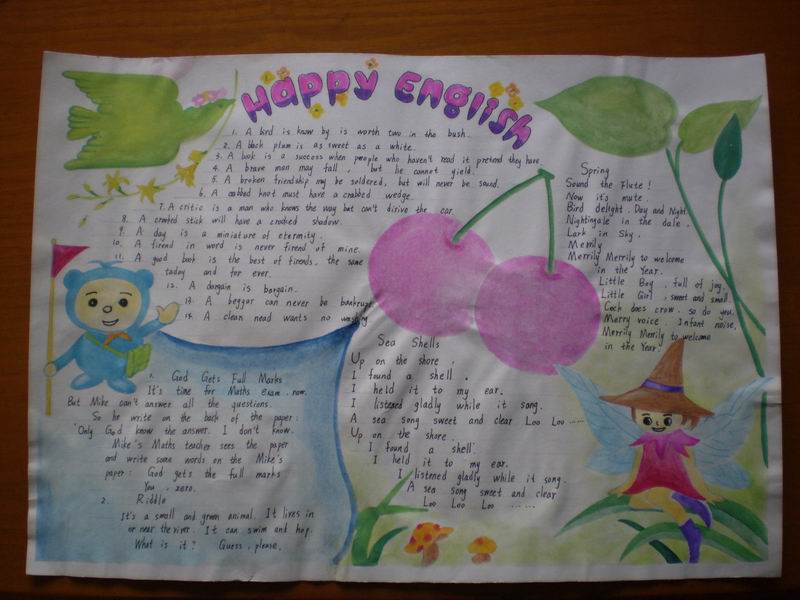 Happy English
1. A bird is know by is worth two in the bush.
2. A black plum is as sweet as a white.
3. A book is a success when people who haven't read it pretend they have.
4. A brave man may fall, but he cannot yield.
5. A broken friendship may be soldered, but will never be sound.
6. A crabbed knot must have a crabbed wedge.
7. A critic is a man who knows the way but can't dirive the car
8. A crooked stick will have a crooked shadow.
9. A day is a miniature of etermity.
10. A firend in word is never firend of mine.
11. A good book is the best of firends, the same
today and for ever.
12. A bargain is bargain.
13. A beggar can never be bankrupt.
14. A clean head wants no washing
Spring
Sound the Flute!
Now it's mute.
Bird delight. Day and Night.
Nightingale in the dale,
Lark in Sky.
Merrily
Merrily Merrily to welcome
in the Year.
Little Boy, full of joy.
Little Girl, sweet and small.
Cock does crow, so do you.
Merry voice. Infant noise.
Merrily Merrily to welcome
in the Year!
Sea Shells
Up on the shore,
I found a shell.
I held it to my ear.
I listened gladly while it sang.
A sea song sweet and clear Loo Loo ......
Up on the shore.
I found a shell.
I held it to my ear.
I listened gladly while it song.
A sea song sweet and clear
Loo Loo Loo ......
1. God Gets Full Marks
It's time for Maths exam. now.
But Mike can't answer all the questions.
So he write on the back of the paper:
"Only God know the answer. I don't know.
Mike's Maths teacher sees the paper
and write some words on the Mike's
paper: God gets the full marks
You, zero.
2. Riddle
It's a small and green animal. It lives in
or near the river. It can swim and hop.
What is it? Guess, please.